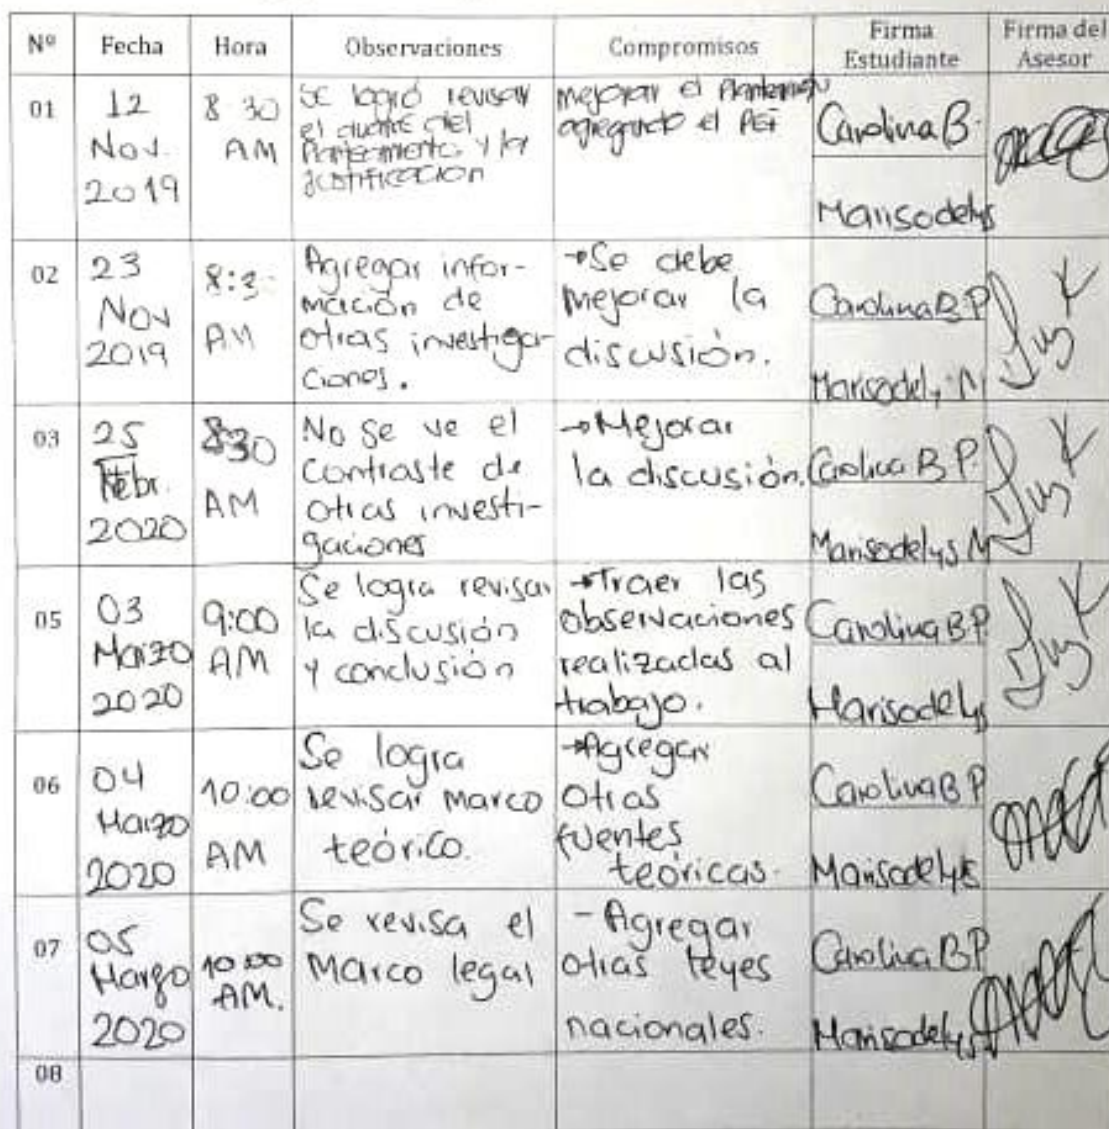 Nº Fecha Hora Observaciones Compromisos Firma Estudiante Firma del Asesor
01
12
Nov.
2019
8 30
AM
Se logró revisar
el avance del
Planteamiento y la
Justificación
mejorar el Planteamien
agregando el PEI
Carolina B.
Marisodelys
02
23
Nov
2019
8:3
AM
Agregar infor-
mación de
otras investiga-
ciones.
→Se debe
mejorar la
discusión.
Carolina B P
Marisodelys M
03
25
Febr.
2020
8:30
AM
No se ve el
contraste de
otras investi-
gaciones
→Mejorar
la discusión.
Carolina B P.
Marisodelys M
05
03
Marzo
2020
9:00
AM
Se logra revisar
la discusión
y conclusión
→Traer las
observaciones
realizadas al
trabajo.
Carolina B.P.
Marisodelys
06
04
Marzo
2020
10:00
AM
Se logra
revisar marco
teórico.
→Agregar
otras
fuentes
teóricas.
Carolina B P
Marisodelys
07
05
Marzo
2020
10:00
AM.
Se revisa el
Marco legal
- Agregar
otras leyes
nacionales.
Carolina B P
Marisodelys
08